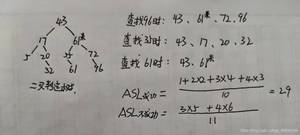 43
17 61*
5 20 25 72
32 51 96
二叉判定树
查找96时: 43、61*、72、96
查找32时: 43、17、20、32
查找61时: 43、61*
ASL成功 = 1+2×2+3×4+4×3 / 10 = 29
ASL不成功 = 3×5 + 4×6 / 11